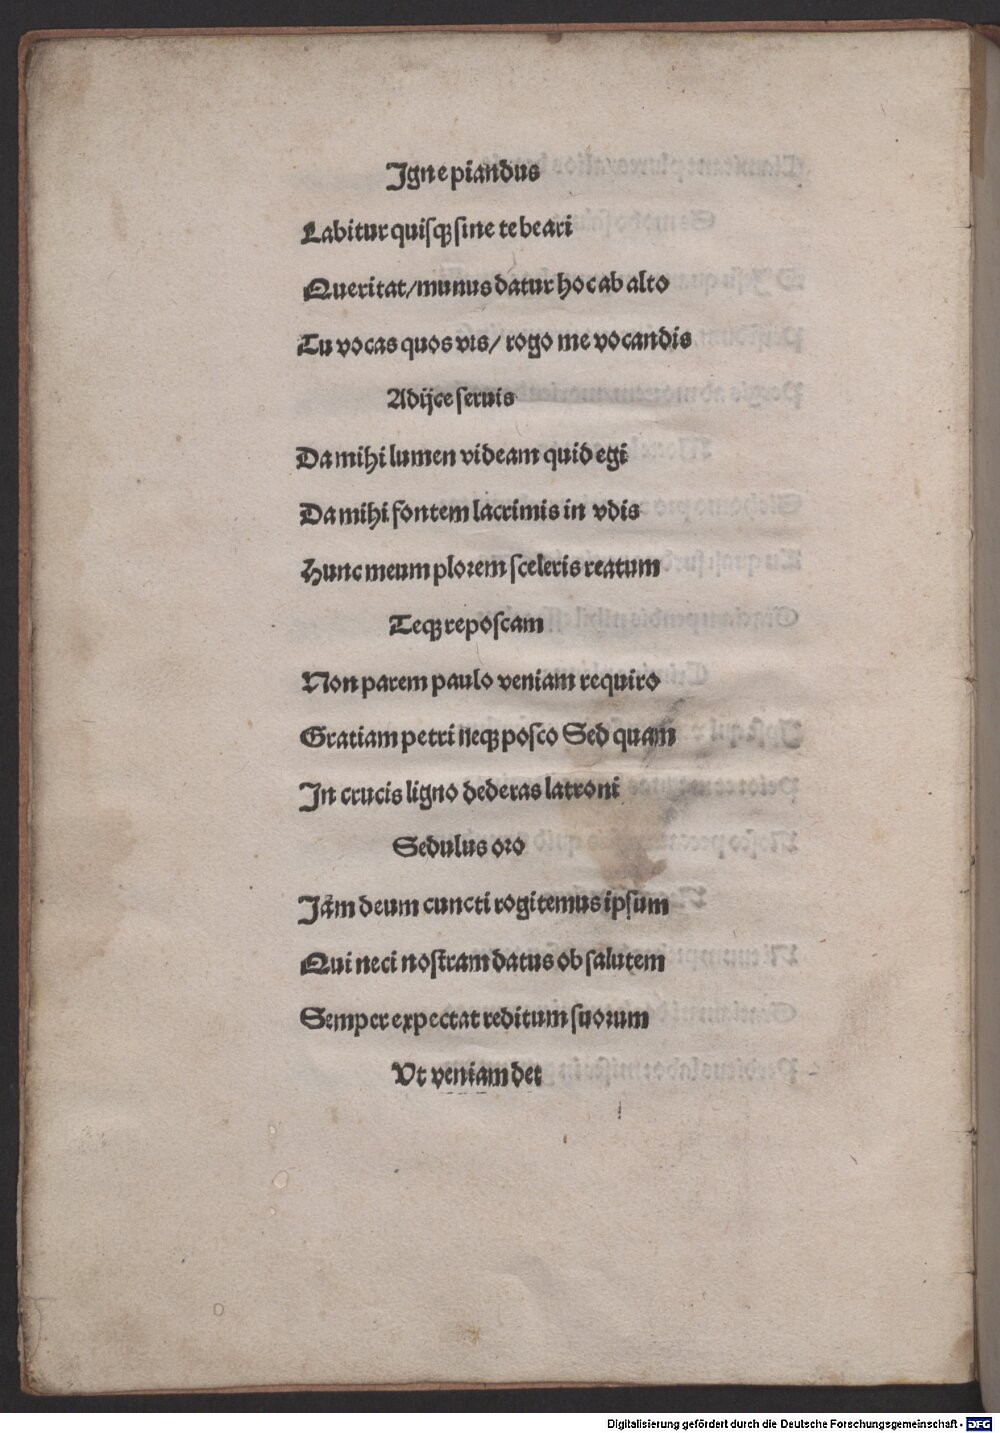 Igne piandus
Labitur quisqꝫ sine te beari
Queritat/munus datur hoc ab alto
Tu vocas quos vis/ rogo me vocandis
Adijce seruis
Da mihi lumen videam quid egi
Da mihi fontem lacrimis in vdis
Hunc meum plorem sceleris reatum
Teqꝫ reposcam
Non parem paulo veniam requiro
Gratiam petri neqꝫ posco Sed quam
In crucis ligno dederas latroni
Sedulus oro
Jam deum cuncti rogitemus ipsum
Qui neci nostram datus ob salutem
Semper expectat reditum suorum
Vt veniam det
Digitalisierung gefördert durch die Deutsche Forschungsgemeinschaft - DFG